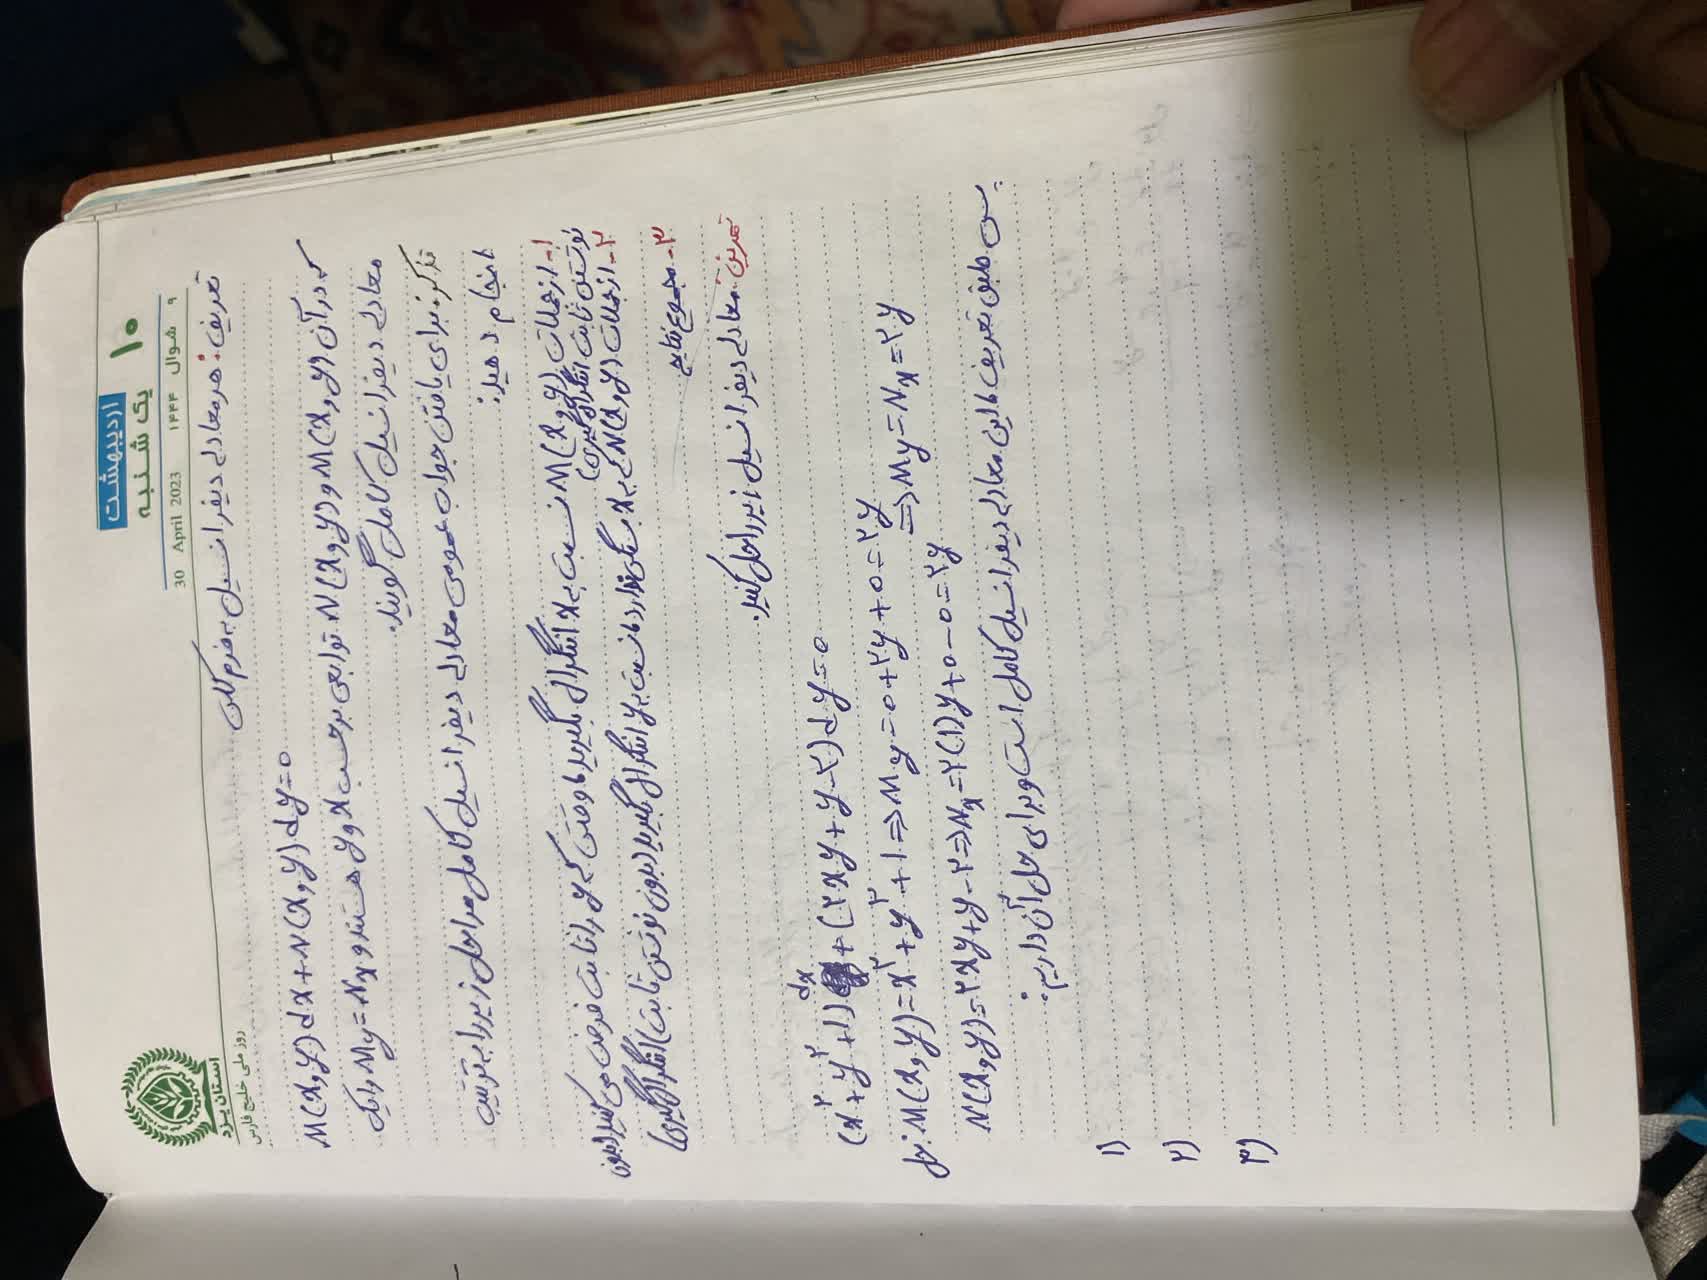 اردیبهشت
یک شنبه
۱۰
30 April 2023 ۱۴۴۴ شوال ۹
استان یزد
روز ملی خلیج فارس
تعریف: هر معادله دیفرانسیل به فرم کلی
M(x,y)dx+N(x,y)dy=0
که در آن M(x,y) و N(x,y) توابعی برحسب x و y هستند و My=Nx را یک
معادله دیفرانسیل کامل گویند.
تذکر مه: برای یافتن جواب عمومی معادله دیفرانسیل کامل مراحل زیر را به ترتیب
انجام دهید:
۱- از جملات M(x,y) نسبت به x انتگرال بگیرید و وقتی که y را ثابت فرض می کنید (بدون
نوشتن ثابت انتگرال گیری)
۲- از جملات N(x,y) که x ندارد نسبت به y انتگرال بگیرید (بدون نوشتن ثابت انتگرال گیری)
۳- مجموع نتایج
تمرین: معادله دیفرانسیل زیر را حل کنید.
(x²+y²+1)dx+(۲xy+y-۲)dy=0
حل: M(x,y)=x²+y²+1⇒My=0+۲y+0=۲y
⇒My=Nx=۲y
N(x,y)=۲xy+y-۲⇒Nx=۲(1)y+0-0=۲y
پس طبق تعریف بالا این معادله دیفرانسیل کامل است و برای حل آن داریم:
۱)
۲)
۳)